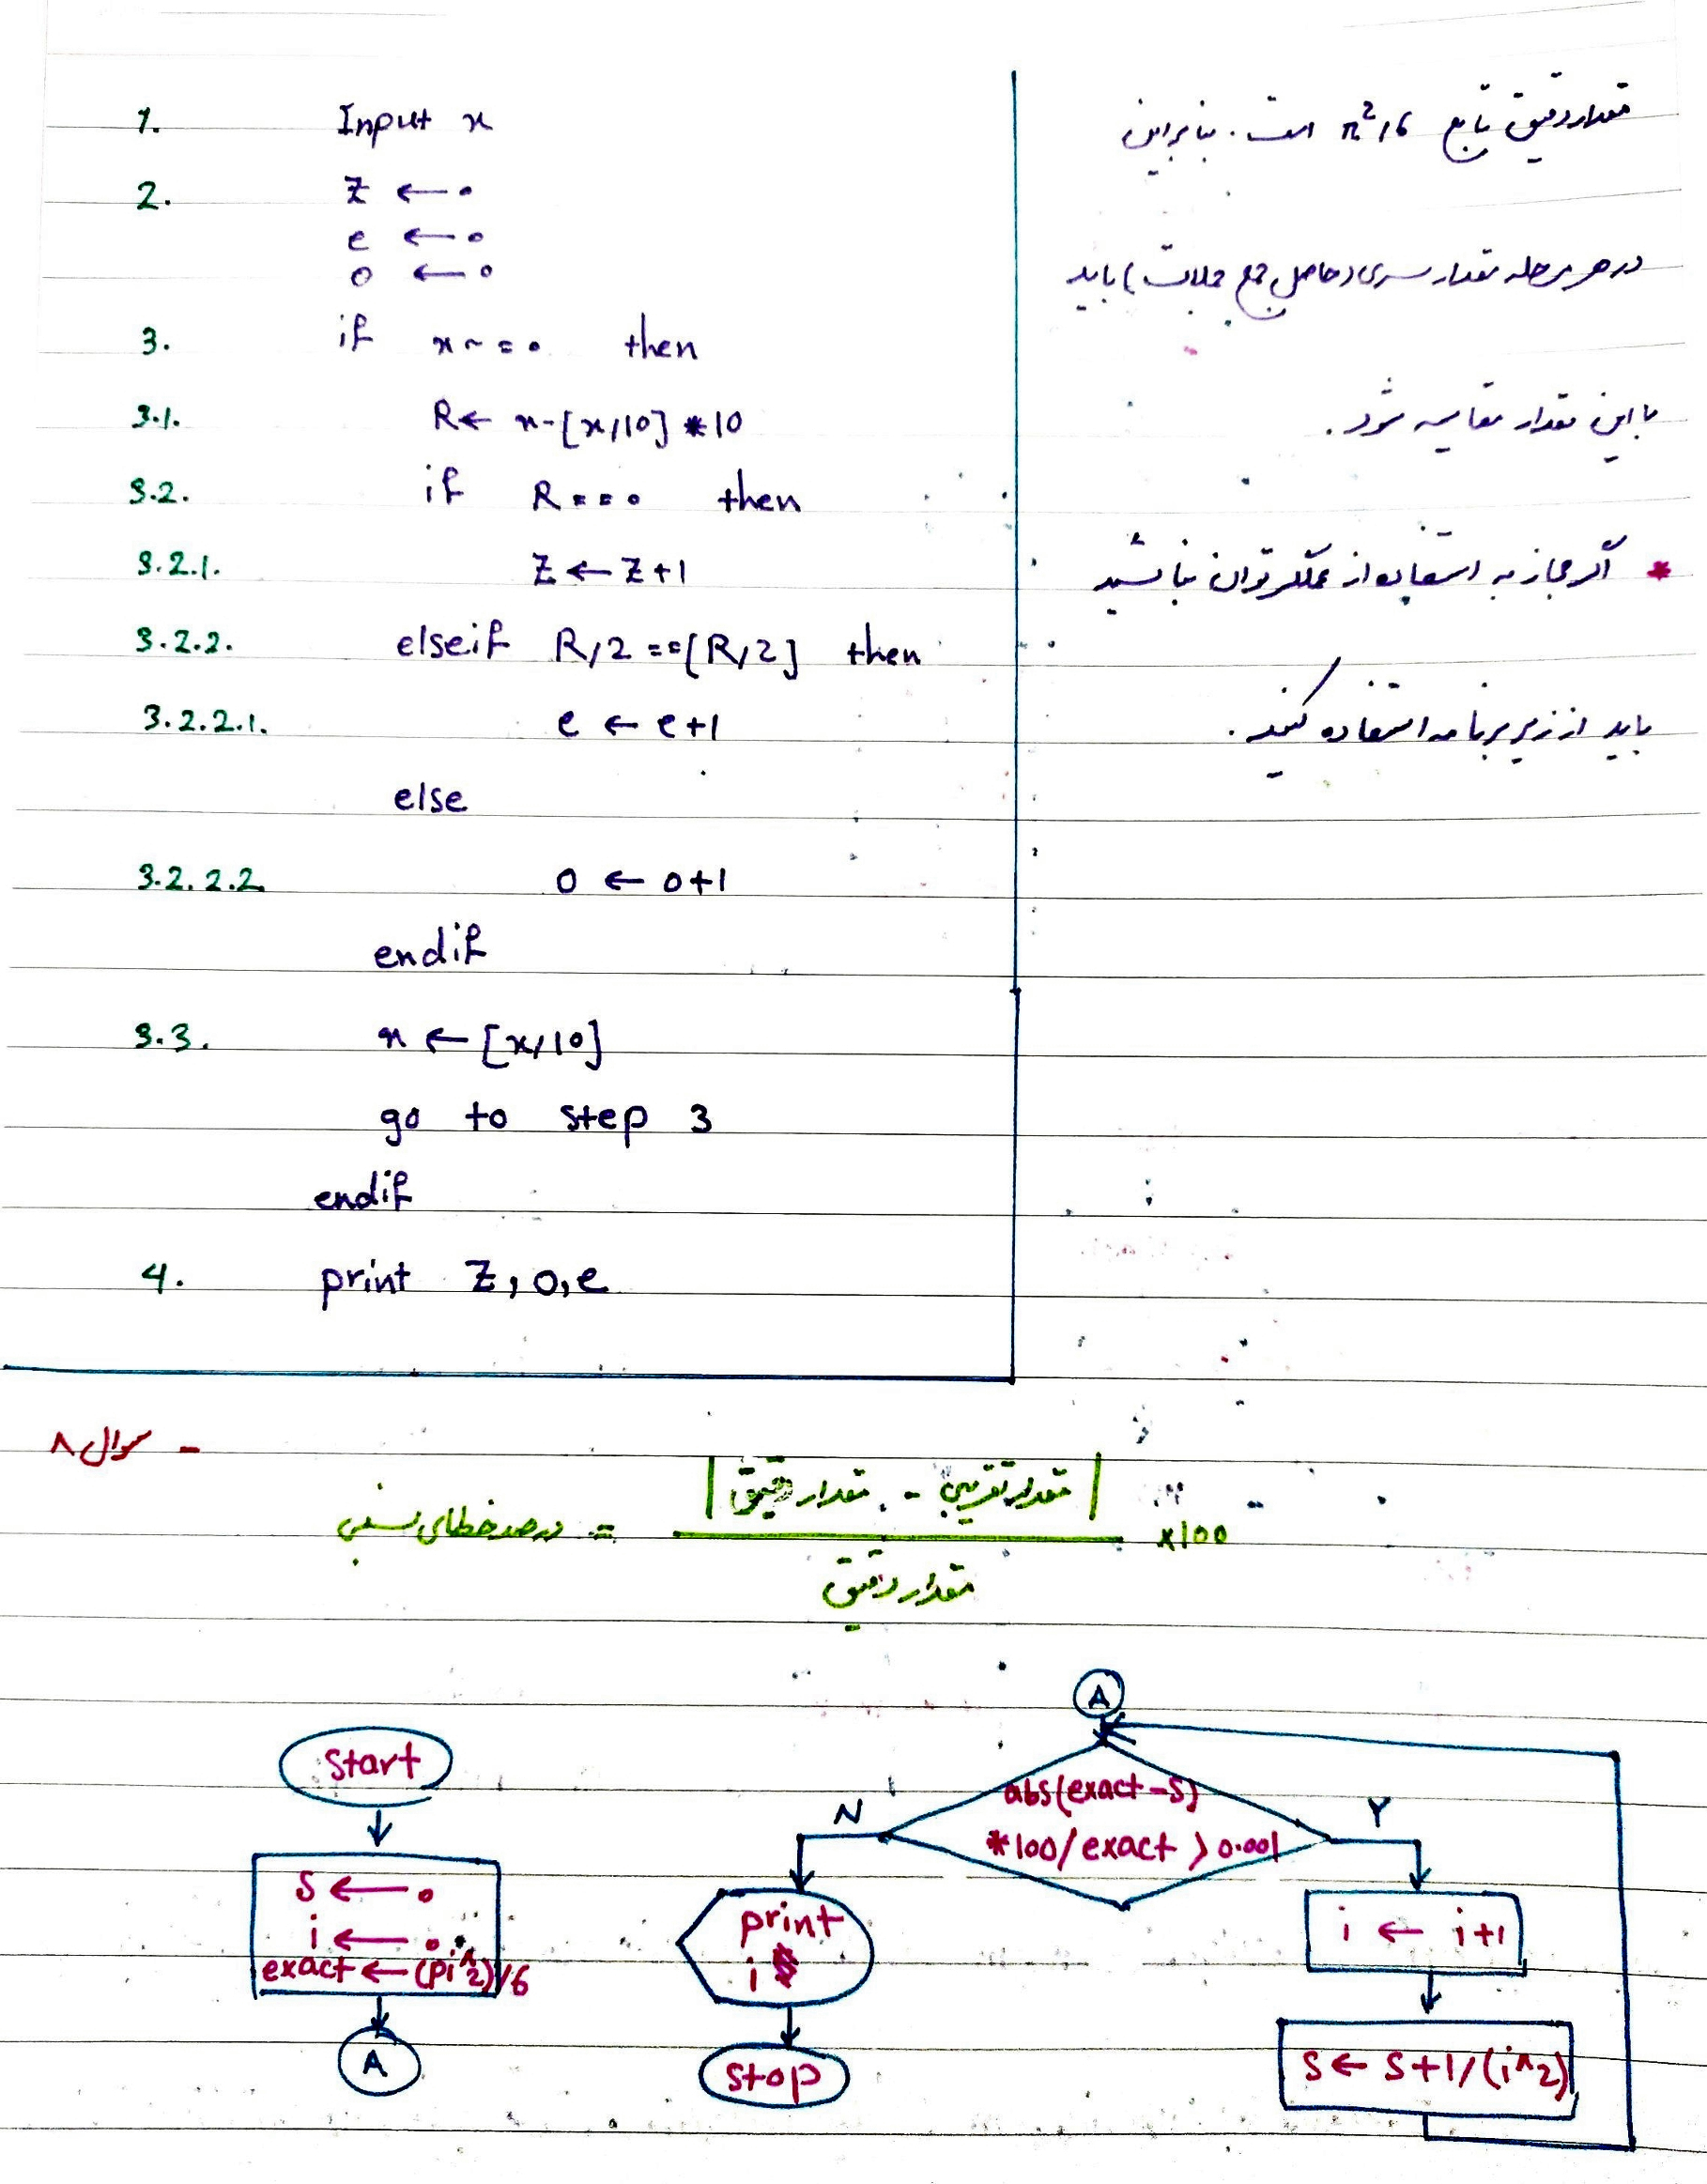 1. Input x
2. Z ← 0
e ← 0
o ← 0
3. if x ~= 0 then
3.1. R ← x-[x/10]*10
3.2. if R == 0 then
3.2.1. Z ← Z+1
3.2.2. elseif R/2 ==[R/2] then
3.2.2.1. e ← e+1
else
3.2.2.2. o ← o+1
endif
3.3. x ← [x/10]
go to step 3
endif
4. print Z,o,e
مقدار دقیق تابع π²/6 است. بنابراین
در هر مرحله مقدار سری (حاصل جمع جملات) باید
با این مقدار مقایسه شود.
* اگر مجاز به استفاده از عملگر توان نباشید
باید از زیربرنامه استفاده کنید.
- سوال ۸
درصد خطای نسبی = |مقدار دقیق - مقدار تقریبی| ×100
مقدار دقیق
start
S ← 0
i ← 0
exact ← (pi^2)/6
A
A
abs(exact-S)
*100/exact > 0.001
N
Y
print
i
stop
i ← i+1
S ← S+1/(i^2)